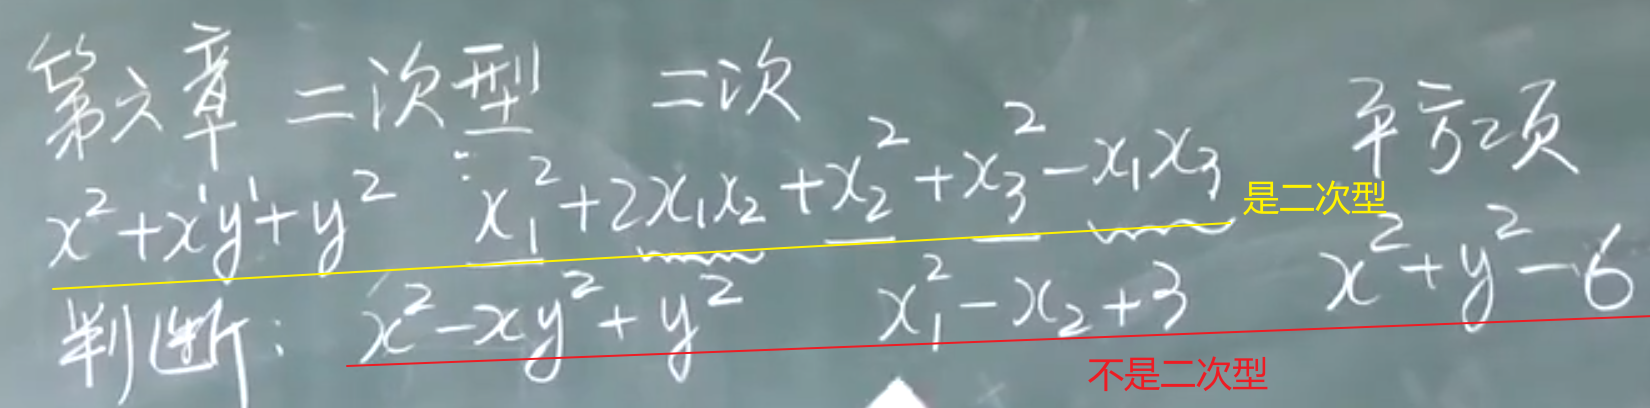 第六章 二次型 二次 平方项
x²+x¹y¹+y² x₁²+2x₁x₂+x₂²+x₃²-x₁x₃ 是二次型
判断: x²-xy²+y² x₁²-x₂+3 x²+y²-6
不是二次型